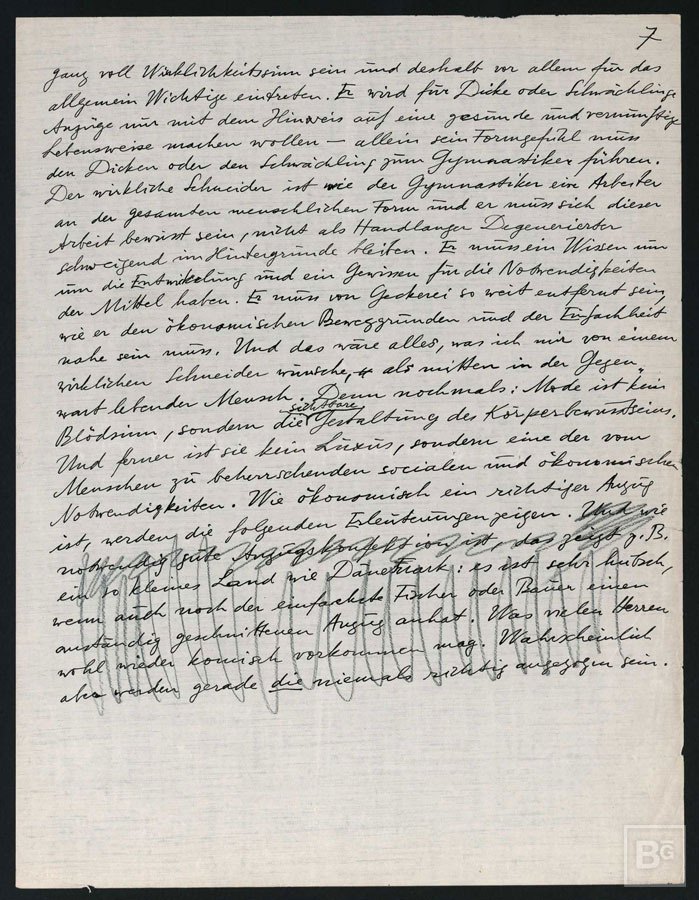 7
ganz voll Wirklichkeitssinn sein und deshalb vor allem für das
allgemein Wichtige eintreten. Er wird für Dicke oder Schwächlinge
Anzüge nur mit dem Hinweis auf eine gesunde und vernünftige
Lebensweise machen wollen – allein sein Formgefühl muss
den Dicken oder den Schwächling zum Gymnastiker führen.
Der wirkliche Schneider ist wie der Gymnastiker ein Arbeiter
an der gesamten menschlichen Form und er muss sich dieser
Arbeit bewusst sein, nicht als Handlanger Degenerierter
schweigend im Hintergrunde bleiben. Er muss ein Wissen um
um die Entwickelung und ein Gewissen für die Notwendigkeiten
der Mittel haben. Er muss von Geckerei so weit entfernt sein,
wie er den ökonomischen Beweggründen und der Einfachheit
nahe sein muss. Und das wäre alles, was ich mir von einem
wirklichen Schneider wünsche, als mitten in der Gegen-
wart lebender Mensch. Denn nochmals: Mode ist kein
sichtbare
Blödsinn, sondern die Gestaltung des Körperbewusstseins.
Und ferner ist sie kein Luxus, sondern eine der vom
Menschen zu beherrschenden socialen und ökonomischen
Notwendigkeiten. Wie ökonomisch ein richtiger Anzug
ist, werden die folgenden Erleuterungen zeigen. Und wie
notwendig gute Anzugskonfektion ist, das zeigt z. B.
ein so kleines Land wie Dänemark: es ist sehr hübsch,
wenn auch noch der einfachste Fischer oder Bauer einen
anständig geschnittenen Anzug anhat. Was vielen Herren
wohl wieder komisch vorkommen mag. Wahrscheinlich
aber werden gerade die niemals richtig angezogen sein.
BG